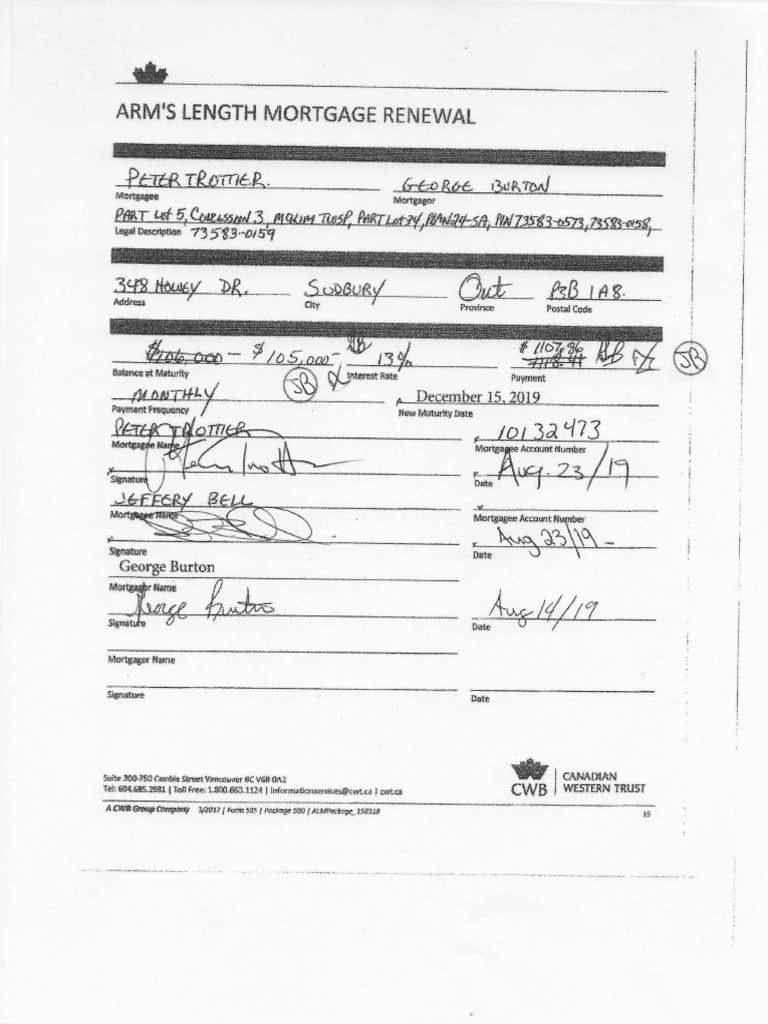 ARM'S LENGTH MORTGAGE RENEWAL
PETER TROTTIER. GEORGE BURTON
Mortgagee Mortgagor
PART Lot 5, CONCESSION 3, MCKIM TWSP, PART Lot 34, PLAN 24-SA, PIN 73583-0573, 73583-0158,
Legal Description 73583-0159
348 HOWEY DR. SUDBURY Ont P3B 1A8.
Address City Province Postal Code
$106,000 - $105,000- GB 13% $1107.86 GB
$1118.41 JB
Balance at Maturity JB Interest Rate Payment
MONTHLY December 15, 2019
Payment Frequency New Maturity Date
PETER TROTTIER 10132473
Mortgagee Name Mortgagee Account Number
Peter Trottier Aug. 23/19
Signature Date
JEFFERY BELL
Mortgagee Name Mortgagee Account Number
Aug 23/19
Signature Date
George Burton
Mortgagor Name
George Burton Aug 14/19
Signature Date
Mortgagor Name
Signature Date
Suite 300-750 Cambie Street Vancouver BC V6B 0A2
Tel: 604.685.2081 | Toll Free: 1.800.663.1124 | informationservices@cwt.ca | cwt.ca
CWB CANADIAN
WESTERN TRUST
A CWB Group Company 3/2017 | Form 505 | Package 500 | ALMPackage_150318
19